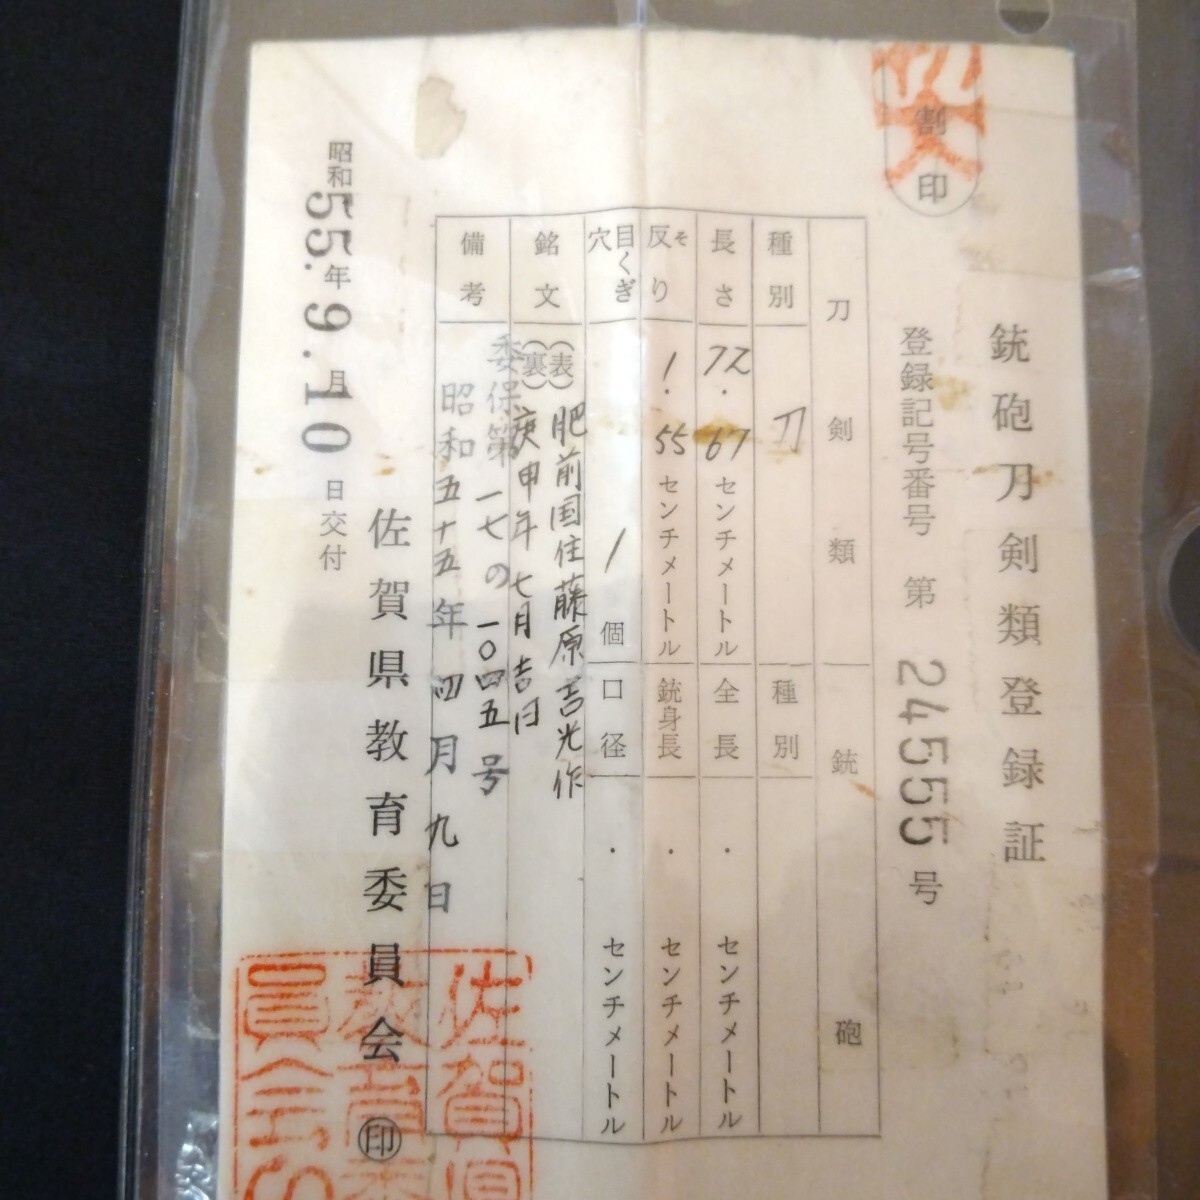 銃砲刀剣類登録証
割印
登録記号番号 第 24555 号
刀剣類
種別 刀
長さ 72.67 センチメートル
反り そ 1.55 センチメートル
目くぎ穴 1 個
銘文
(表) 肥前国住藤原吉光作
(裏) 庚申年七月吉日
備考
委保第一七の一〇四五号
昭和五十五年四月九日
銃砲
種別
全長 . センチメートル
銃身長 . センチメートル
口径 . センチメートル
昭和55.年9.月10日交付
佐賀県教育委員会 印
佐賀県
教育委
員会